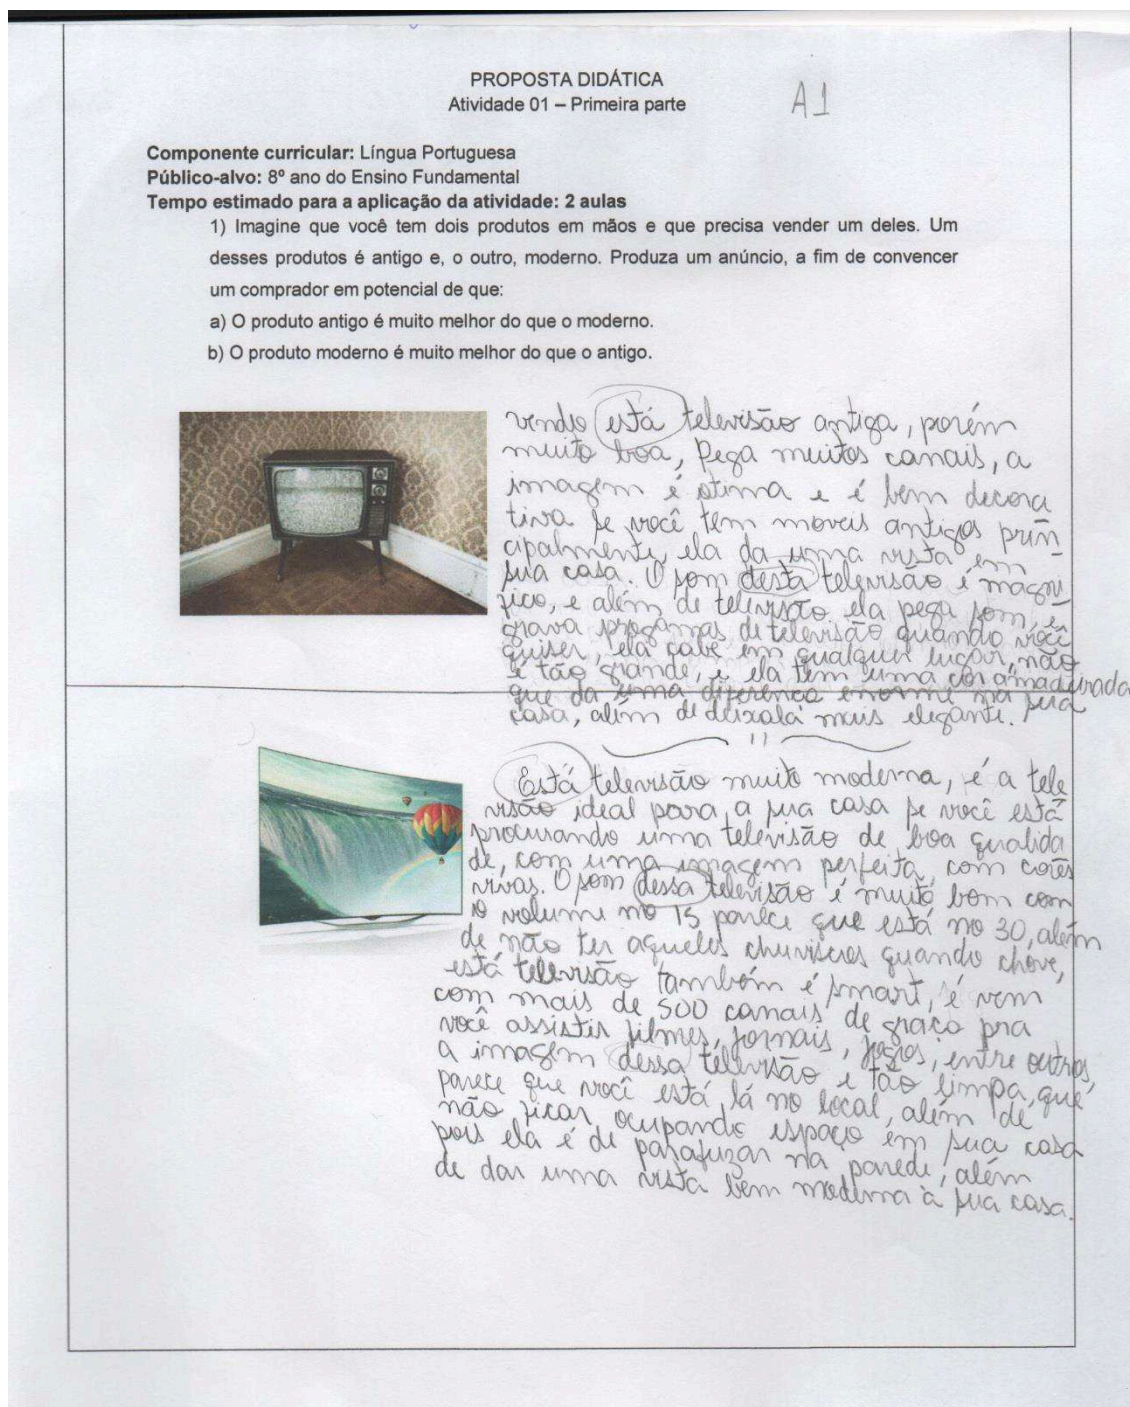 PROPOSTA DIDÁTICA
Atividade 01 – Primeira parte
A1
Componente curricular: Língua Portuguesa
Público-alvo: 8º ano do Ensino Fundamental
Tempo estimado para a aplicação da atividade: 2 aulas
1) Imagine que você tem dois produtos em mãos e que precisa vender um deles. Um
desses produtos é antigo e, o outro, moderno. Produza um anúncio, a fim de convencer
um comprador em potencial de que:
a) O produto antigo é muito melhor do que o moderno.
b) O produto moderno é muito melhor do que o antigo.
vendo está televisão antiga, porém
muito boa, Pega muitos canais, a
imagem é otima e é bem decora
tiva se você tem moveis antigos prin
cipalmente, ela da uma vista em
sua casa. O som desta televisão é magni
fico, e além de televisão ela pega som, e
grava progamas de televisão quando você
quiser, ela cabe em qualquer lugar, não
é tão grande, e ela tem uma cor amadeirada
que da uma diferença enorme na sua
casa, além de deixala mais elegante.
Está televisão muito moderna, é a tele
visão ideal para a sua casa se você está
procurando uma televisão de boa qualida
de, com uma imagem perfeita, com cores
vivas. O som dessa televisão é muito bom com
o volume no 15 parece que está no 30, além
de não ter aqueles chuviscos quando chove,
está televisão também é smart, é vem
com mais de 500 canais de graça pra
você assistir filmes, jornais, jogos, entre outros,
a imagem dessa televisão é tão limpa, que
parece que você está lá no local, além de
não ficar ocupando espaço em sua casa
pois ela é de parafuzar na parede, além
de dar uma vista bem moderna à sua casa.